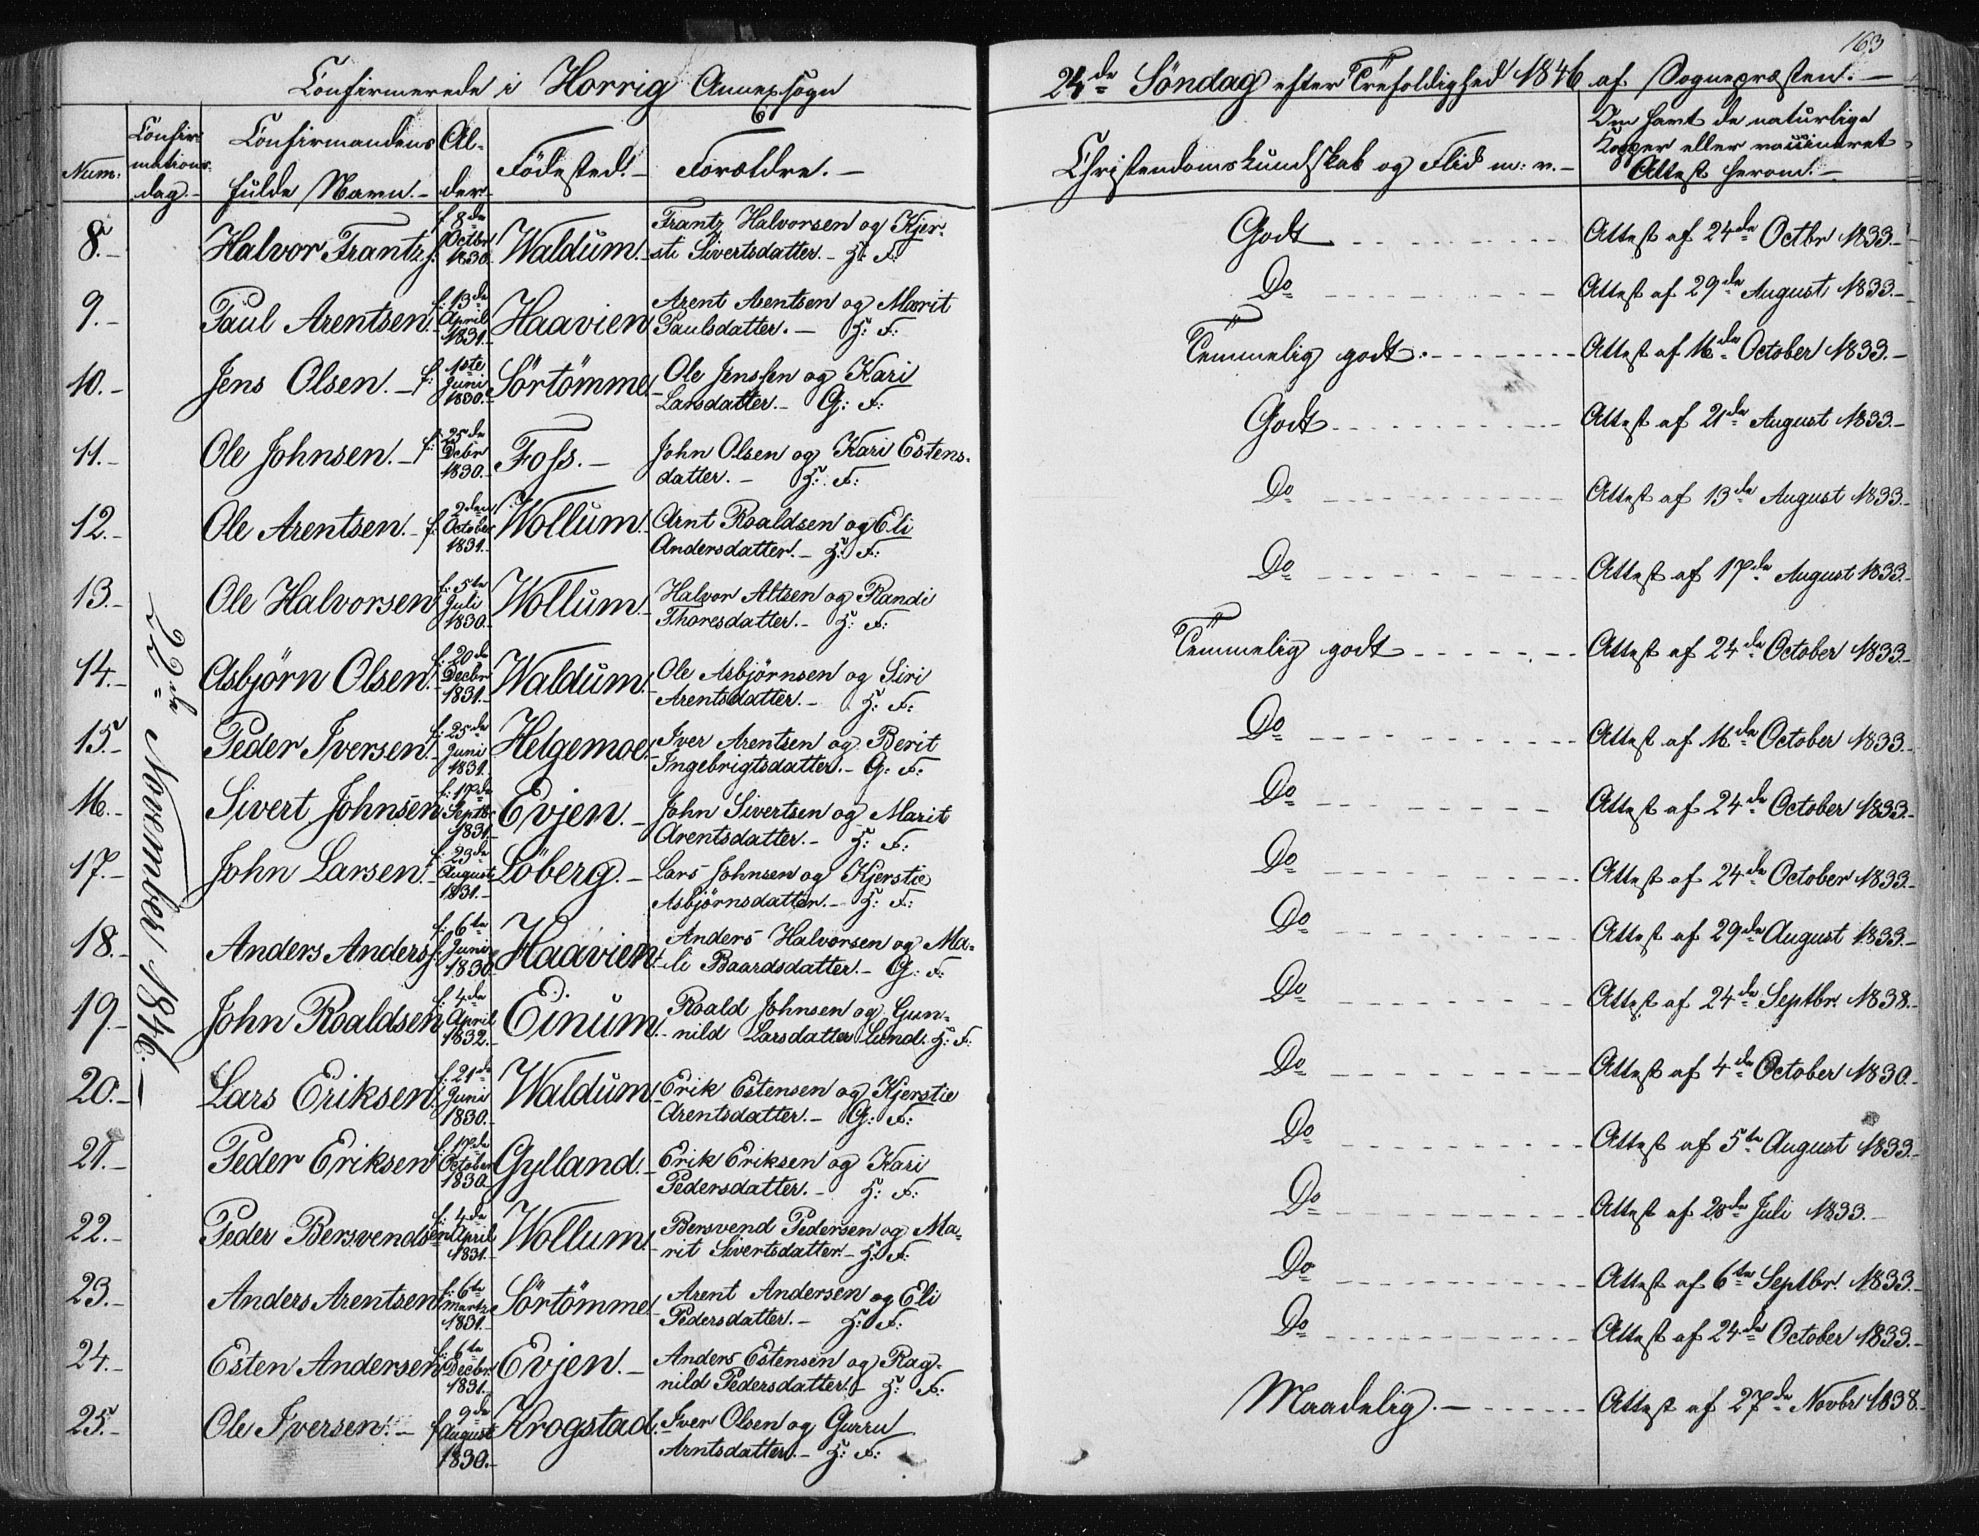 163
Confirmerede i Horrig Annexsogn
24de Söndag efter Trefoldighed 1846 af Sognepræsten.
Num: Confirmations dag. Confirmandens fulde Navn. Alder Födested. Forældre. Christendoms Kundskab og Flid m: v. Om havt de naturlige Kopper eller vaccineret Attest herom.
22de November 1846.
8. Halvor Frantzs. f. 8de Octbr 1830 Waldum. Frantz Halvorsen og Kjer-
sti Sivertsdatter. H: F: Godt Attest af 24de Octbr 1833.
9. Paul Arentsen. f. 13de April 1831. Haavien Arent Arentsen og Marit
Paulsdatter. H: F: Do Attest af 29de August 1833.
10. Jens Olsen. f. 1ste Juni 1830. Sörtömme. Ole Jenssen og Kari
Larsdatter. G: F: Temmelig godt. Attest af 16de October 1833.
11. Ole Johnsen. f. 25de Decbr 1830. Foss. John Olsen og Kari Estens-
datter. H: F: Godt Attest af 21de August 1833.
12. Ole Arentsen. f. 2den October 1831. Wollum. Arnt Roaldsen og Eli
Andersdatter. H: F: Do Attest af 13de August 1833.
13. Ole Halvorsen f. 5te Juli 1830. Wollum. Halvor Altsen og Randi
Thoresdatter. H: F: Do Attest af 17de August 1833.
14. Asbjörn Olsen. f. 20de Decbr 1831. Waldum. Ole Asbjörnsen og Siri
Arentsdatter. H: F: Temmelig godt Attest af 24de October 1833.
15. Peder Iversen. f. 25de Juni 1831. Helgemoe. Iver Arentsen og Berit
Ingebrigtsdatter. G: F: Do Attest af 16de October 1833.
16. Sivert Johnsen f. 17de Septbr 1831. Evjen. John Sivertsen og Marit
Arentsdatter. H: F: Do Attest af 24de October 1833.
17. John Larsen. f. 23de August 1831. Löberg. Lars Johnsen og Kjerstie
Asbjörnsdatter. H: F: Do Attest af 24de October 1833.
18. Anders Anderss. f. 6te Juni 1830. Haavien Anders Halvorsen og Ma-
li Baardsdatter. G: F: Do Attest af 29de August 1833.
19. John Roaldsen f. 4de April 1832. Einum. Roald Johnsen og Gun-
nild Larsdatter Lund. H: F: Do Attest af 24de Septbr. 1838.
20. Lars Eriksen. f. 21de Juni 1830. Waldum. Erik Estensen og Kjerstie
Arentsdatter. G: F: Do Attest af 4de October 1830.
21. Peder Eriksen f. 17de October 1830. Gylland. Erik Eriksen og Kari
Pedersdatter. H: F: Do Attest af 5te August 1833.
22. Peder Bersvendsen f. 4de April 1831. Wollum. Bersvend Pedersen og Ma-
rit Sivertsdatter. H: F: Do Attest af 20de Juli 1833.
23. Anders Arentsen f. 6te Martz 1831. Sörtömme. Arent Andersen og Eli
Pedersdatter. H: F: Do Attest af 6te Septbr. 1833.
24. Esten Andersen f. 6te Decbr. 1831. Evjen. Anders Estensen og Rag-
nild Pedersdatter. H: F: Do Attest af 24de October 1833.
25. Ole Iversen. f. 9de August 1830. Krogstad. Iver Olsen og Guru
Arntsdatter. H: F: Maadelig. Attest af 27de Novbr 1838.